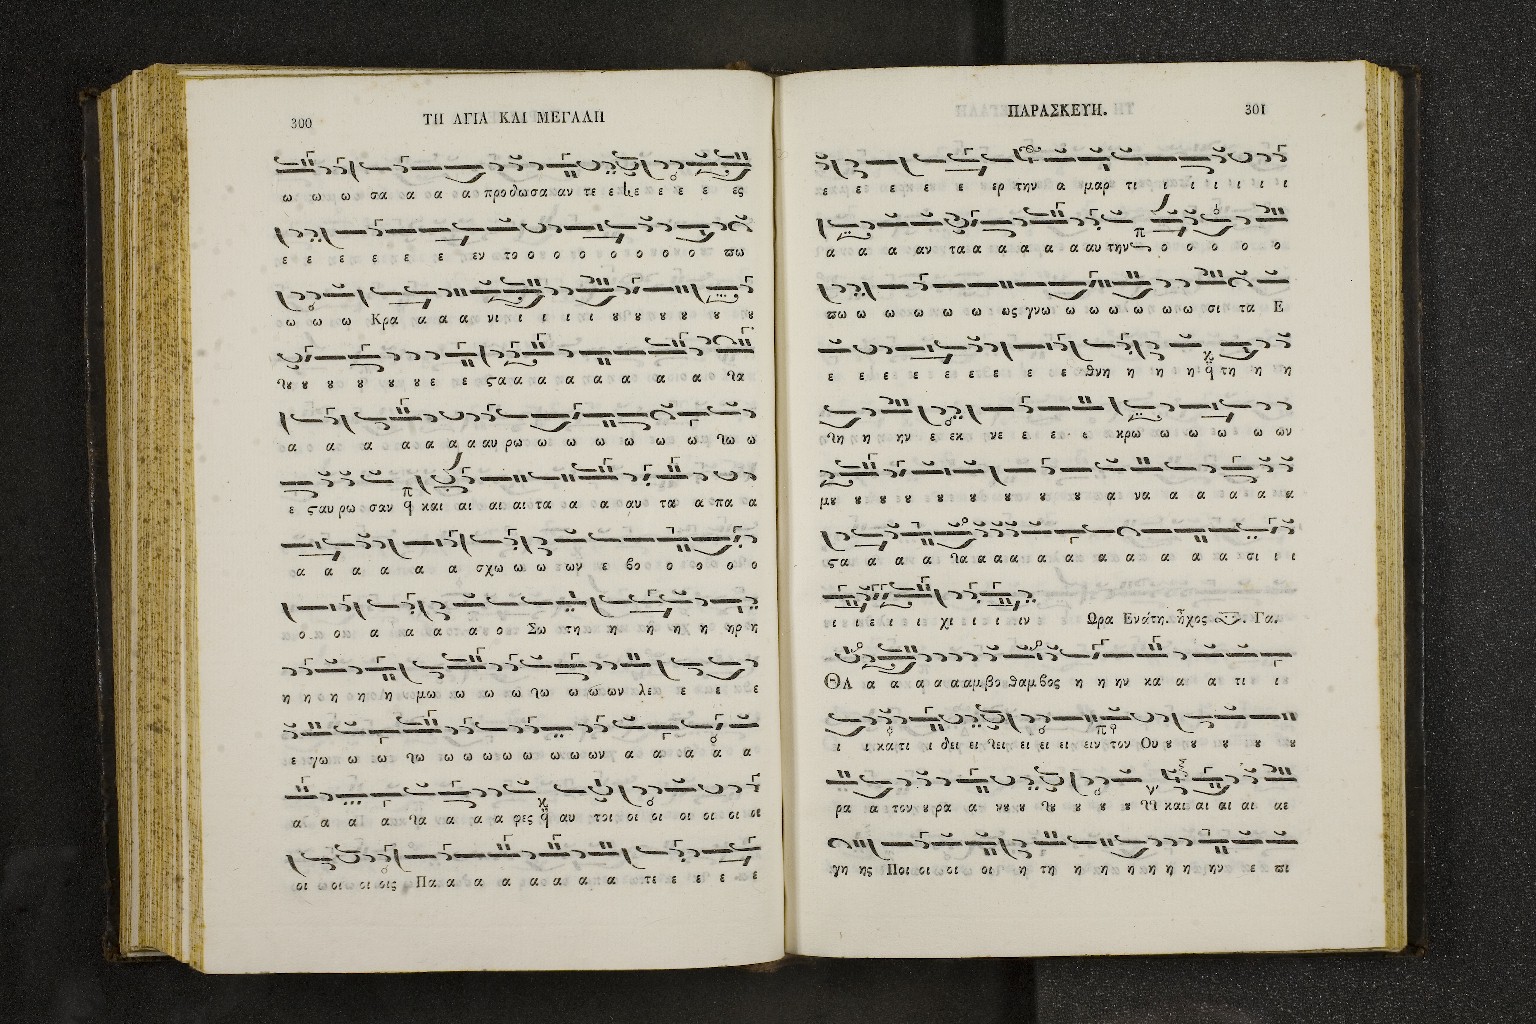 300
ΤΗ ΑΓΙΑ ΚΑΙ ΜΕΓΑΛΗ
ω ω ω σα α α α προδωσα αν τε ε ε ε ε ε ες
ε ε ε ε ε ε εν το ο ο ο ο ο ο ο ϖω
ω ω ω Κρα α α α νι ι ι ι ι ȣ ȣ ȣ ȣ ȣ ȣ
ȣ ȣ ȣ ȣ ȣ ȣ ε ε ϛα α α α α α α α α
α α α α α α α αυ ρω ω ω ω ω ω ω ω
ε ϛαυ ρω σαν και αι αι αι τα α α αυ τα α πα α
α α α α α α σχω ω ω ων ε βο ο ο ο ο
ο α οι α α α α ο Σω τη η η η η ηρ η
η η η η η η μω ω ω ω ω ω ω ων λε ε ε ε
ε γω ω ω ω ω ω ω ω ω ω ω ων α α α α α
α α α α α α α α φες αυ τοι οι οι οι οι οι οι
οι οι οι οι οις Πα α α α α α α α τε ε ε ε ε
ΠΑΡΑΣΚΕΥΗ.
301
ε ε ε ε ε ερ την α μαρ τι ι ι ι ι ι ι
α α α αν τα α α α α α αυ την ο ο ο ο ο
ϖω ω ω ω ω ω ως γνω ω ω ω ω ω ω σι τα Ε
ε ε ε ε ε ε ε ε ε θνη η η η τη η η
η η ην ε εκ νε ε ε ε κρω ω ω ω ω ων
μȣ ȣ ȣ ȣ ȣ ȣ ȣ ȣ ȣ ȣ α να α α α α α
ϛα α α α α α α α α α α α α α α α σι ι ι
ι ι ε ι ι χι ι ι ιν Ωρα Ενάτη. ἦχος Γα.
ΘΑ α α α α α αμβο θαμβος η η ην κα α α τι ι
ι ι κα τι ι δει ει ει ει ει ει ειν τον Ου ȣ ȣ ȣ ȣ ȣ
ρα α τον ȣ ρα α νȣ ȣ ȣ ȣ ȣ ȣ και αι αι αι αε
γη ης Ποι οι οι οι οι η τη η η η η η η ην ε πι